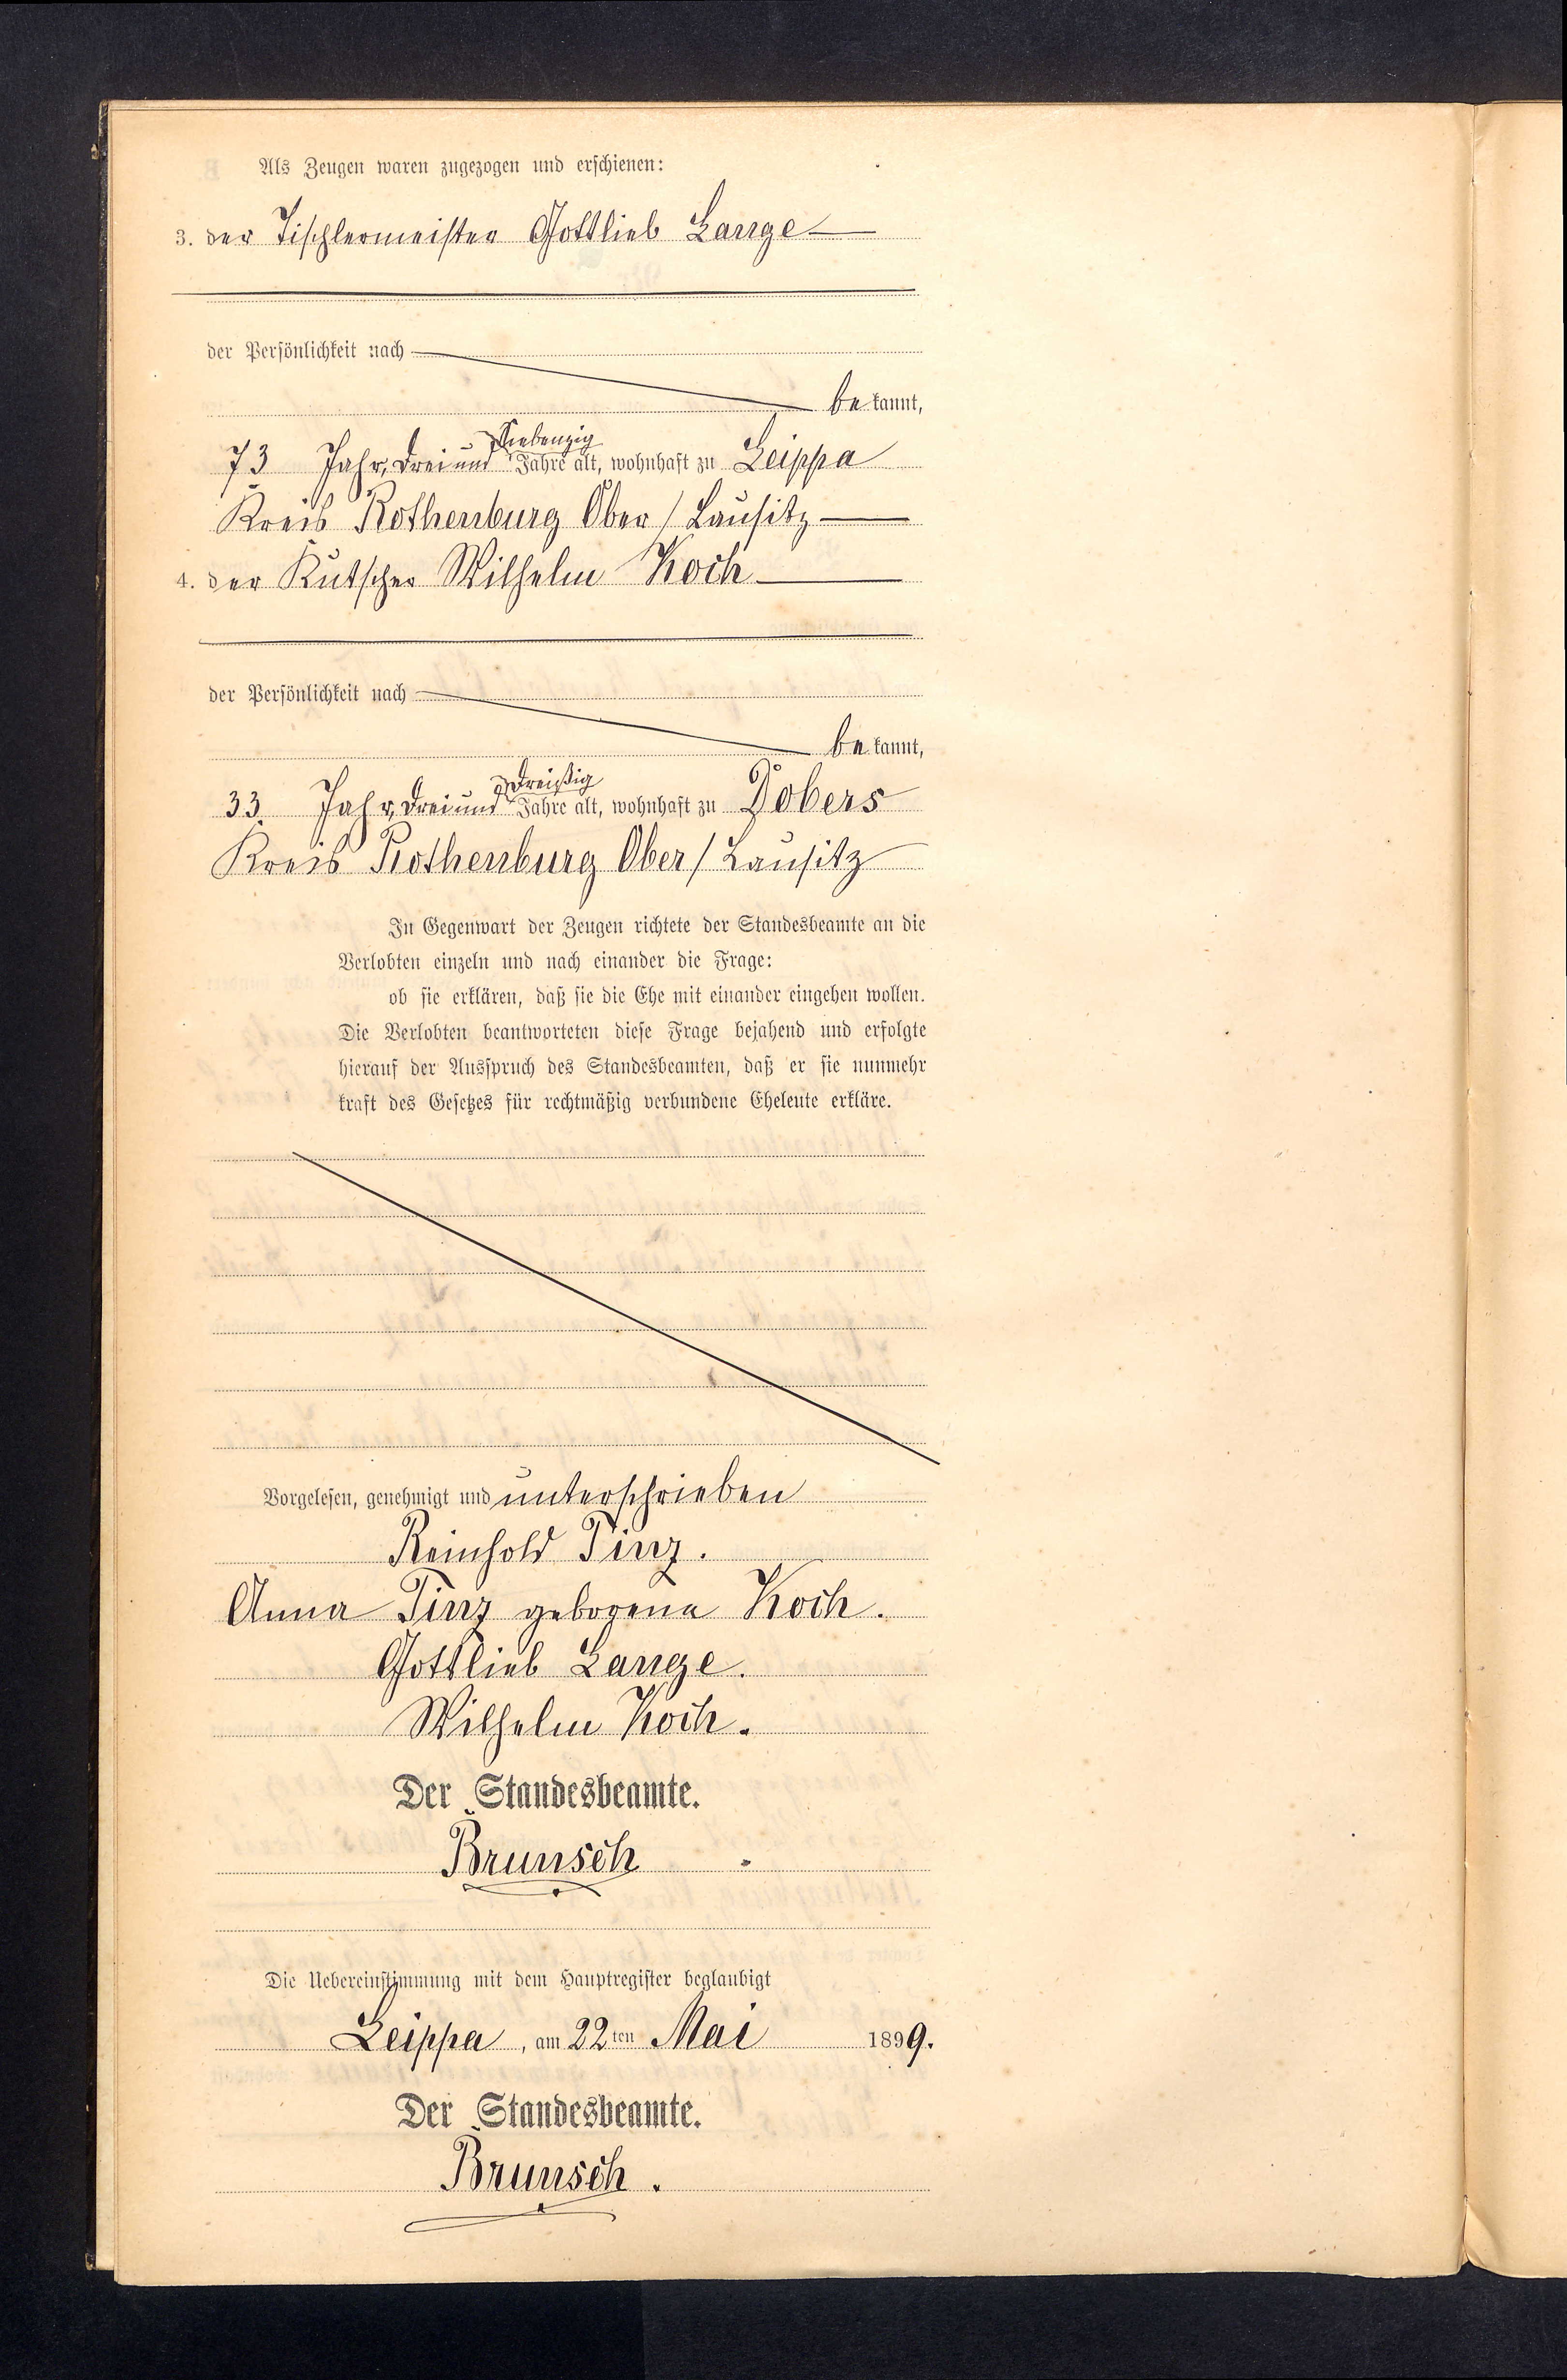 Als Zeugen waren zugezogen und erschienen:
3. der Tischlermeister Gottlieb Lange
der Persönlichkeit nach
bekannt,
Siebenzig
73 Jahr, Drei und Jahre alt, wohnhaft zu Leippa
Kreis Rothenburg Ober / Lausitz
4. der Kutscher Wilhelm Koch
der Persönlichkeit nach
bekannt,
Dreißig
33. Jahr, Drei und Jahre alt, wohnhaft zu Dobers
Kreis Rothenburg Ober / Lausitz
In Gegenwart der Zeugen richtete der Standesbeamte an die
Verlobten einzeln und nach einander die Frage:
ob sie erklären, daß sie die Ehe mit einander eingehen wollen.
Die Verlobten beantworteten diese Frage bejahend und erfolgte
hierauf der Ausspruch des Standesbeamten, daß er sie nunmehr
kraft des Gesetzes für rechtmäßig verbundene Eheleute erkläre.
Vorgelesen, genehmigt und unterschrieben
Reinhold Tinz.
Anna Tinz geborene Koch.
Gottlieb Lange.
Wilhelm Koch.
Der Standesbeamte.
Brunsch
Die Uebereinstimmung mit dem Hauptregister beglaubigt
Leippa, am 22ten Mai 1899.
Der Standesbeamte.
Brunsch.